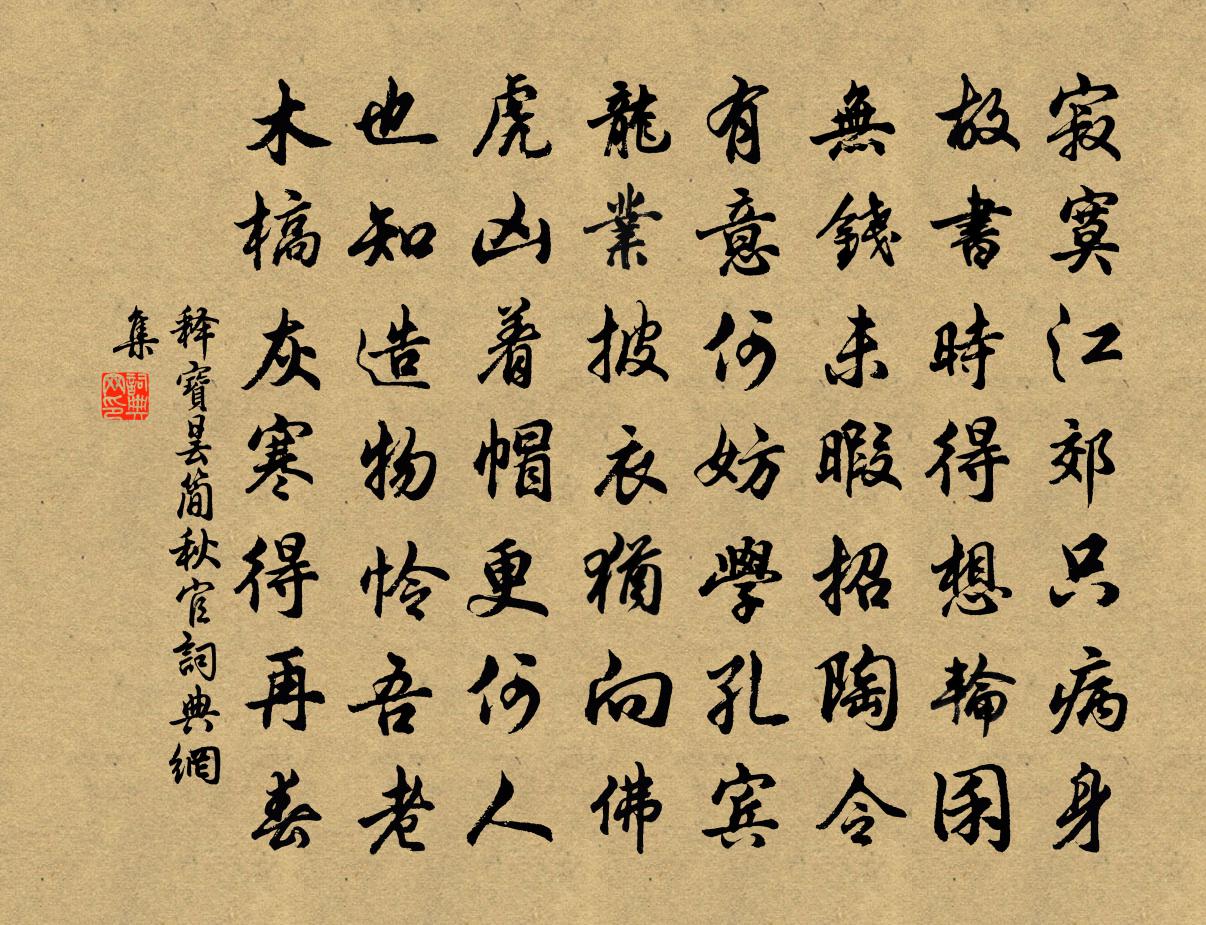 寂寞江郊只病身
故書時得想輪囷
無錢未暇招陶令
有意何妨學孔賓
龍業披衣猶向佛
虎凶着帽更何人
也知造物怜吾老
木槁灰寒得再春
释寶曇簡秋官詞典網
集
詞典
网印